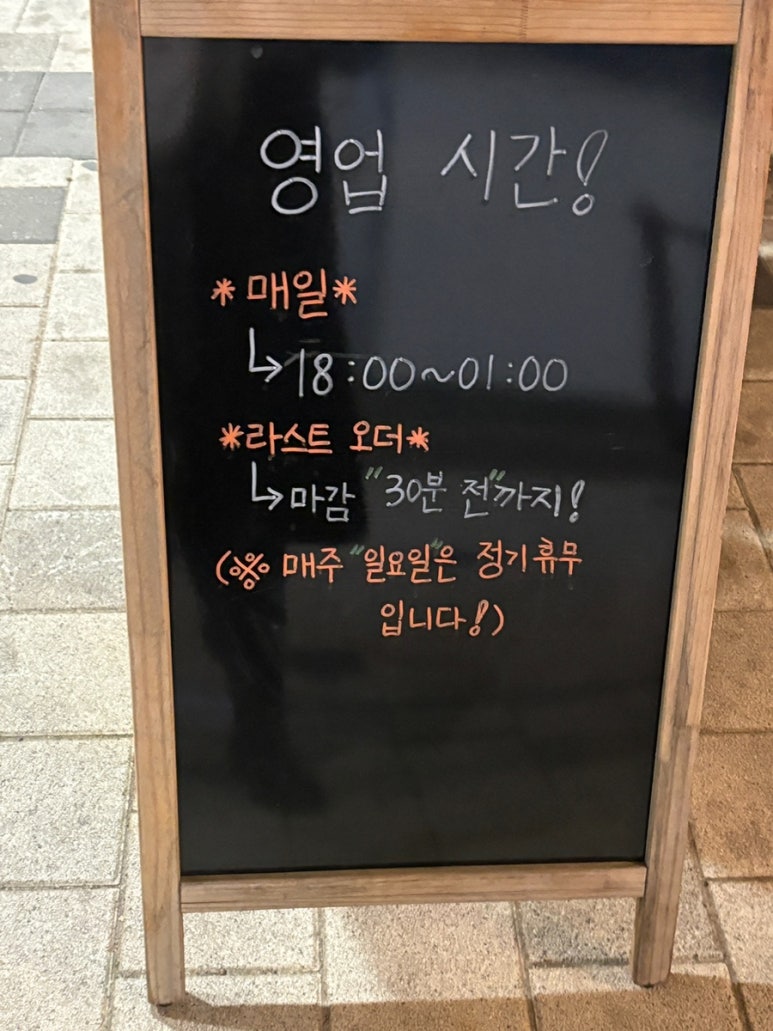 영업 시간!
*매일*
↳18:00~01:00
*라스트 오더*
↳마감 "30분 전"까지!
(※ 매주 "일요일"은 정기휴무
입니다!)